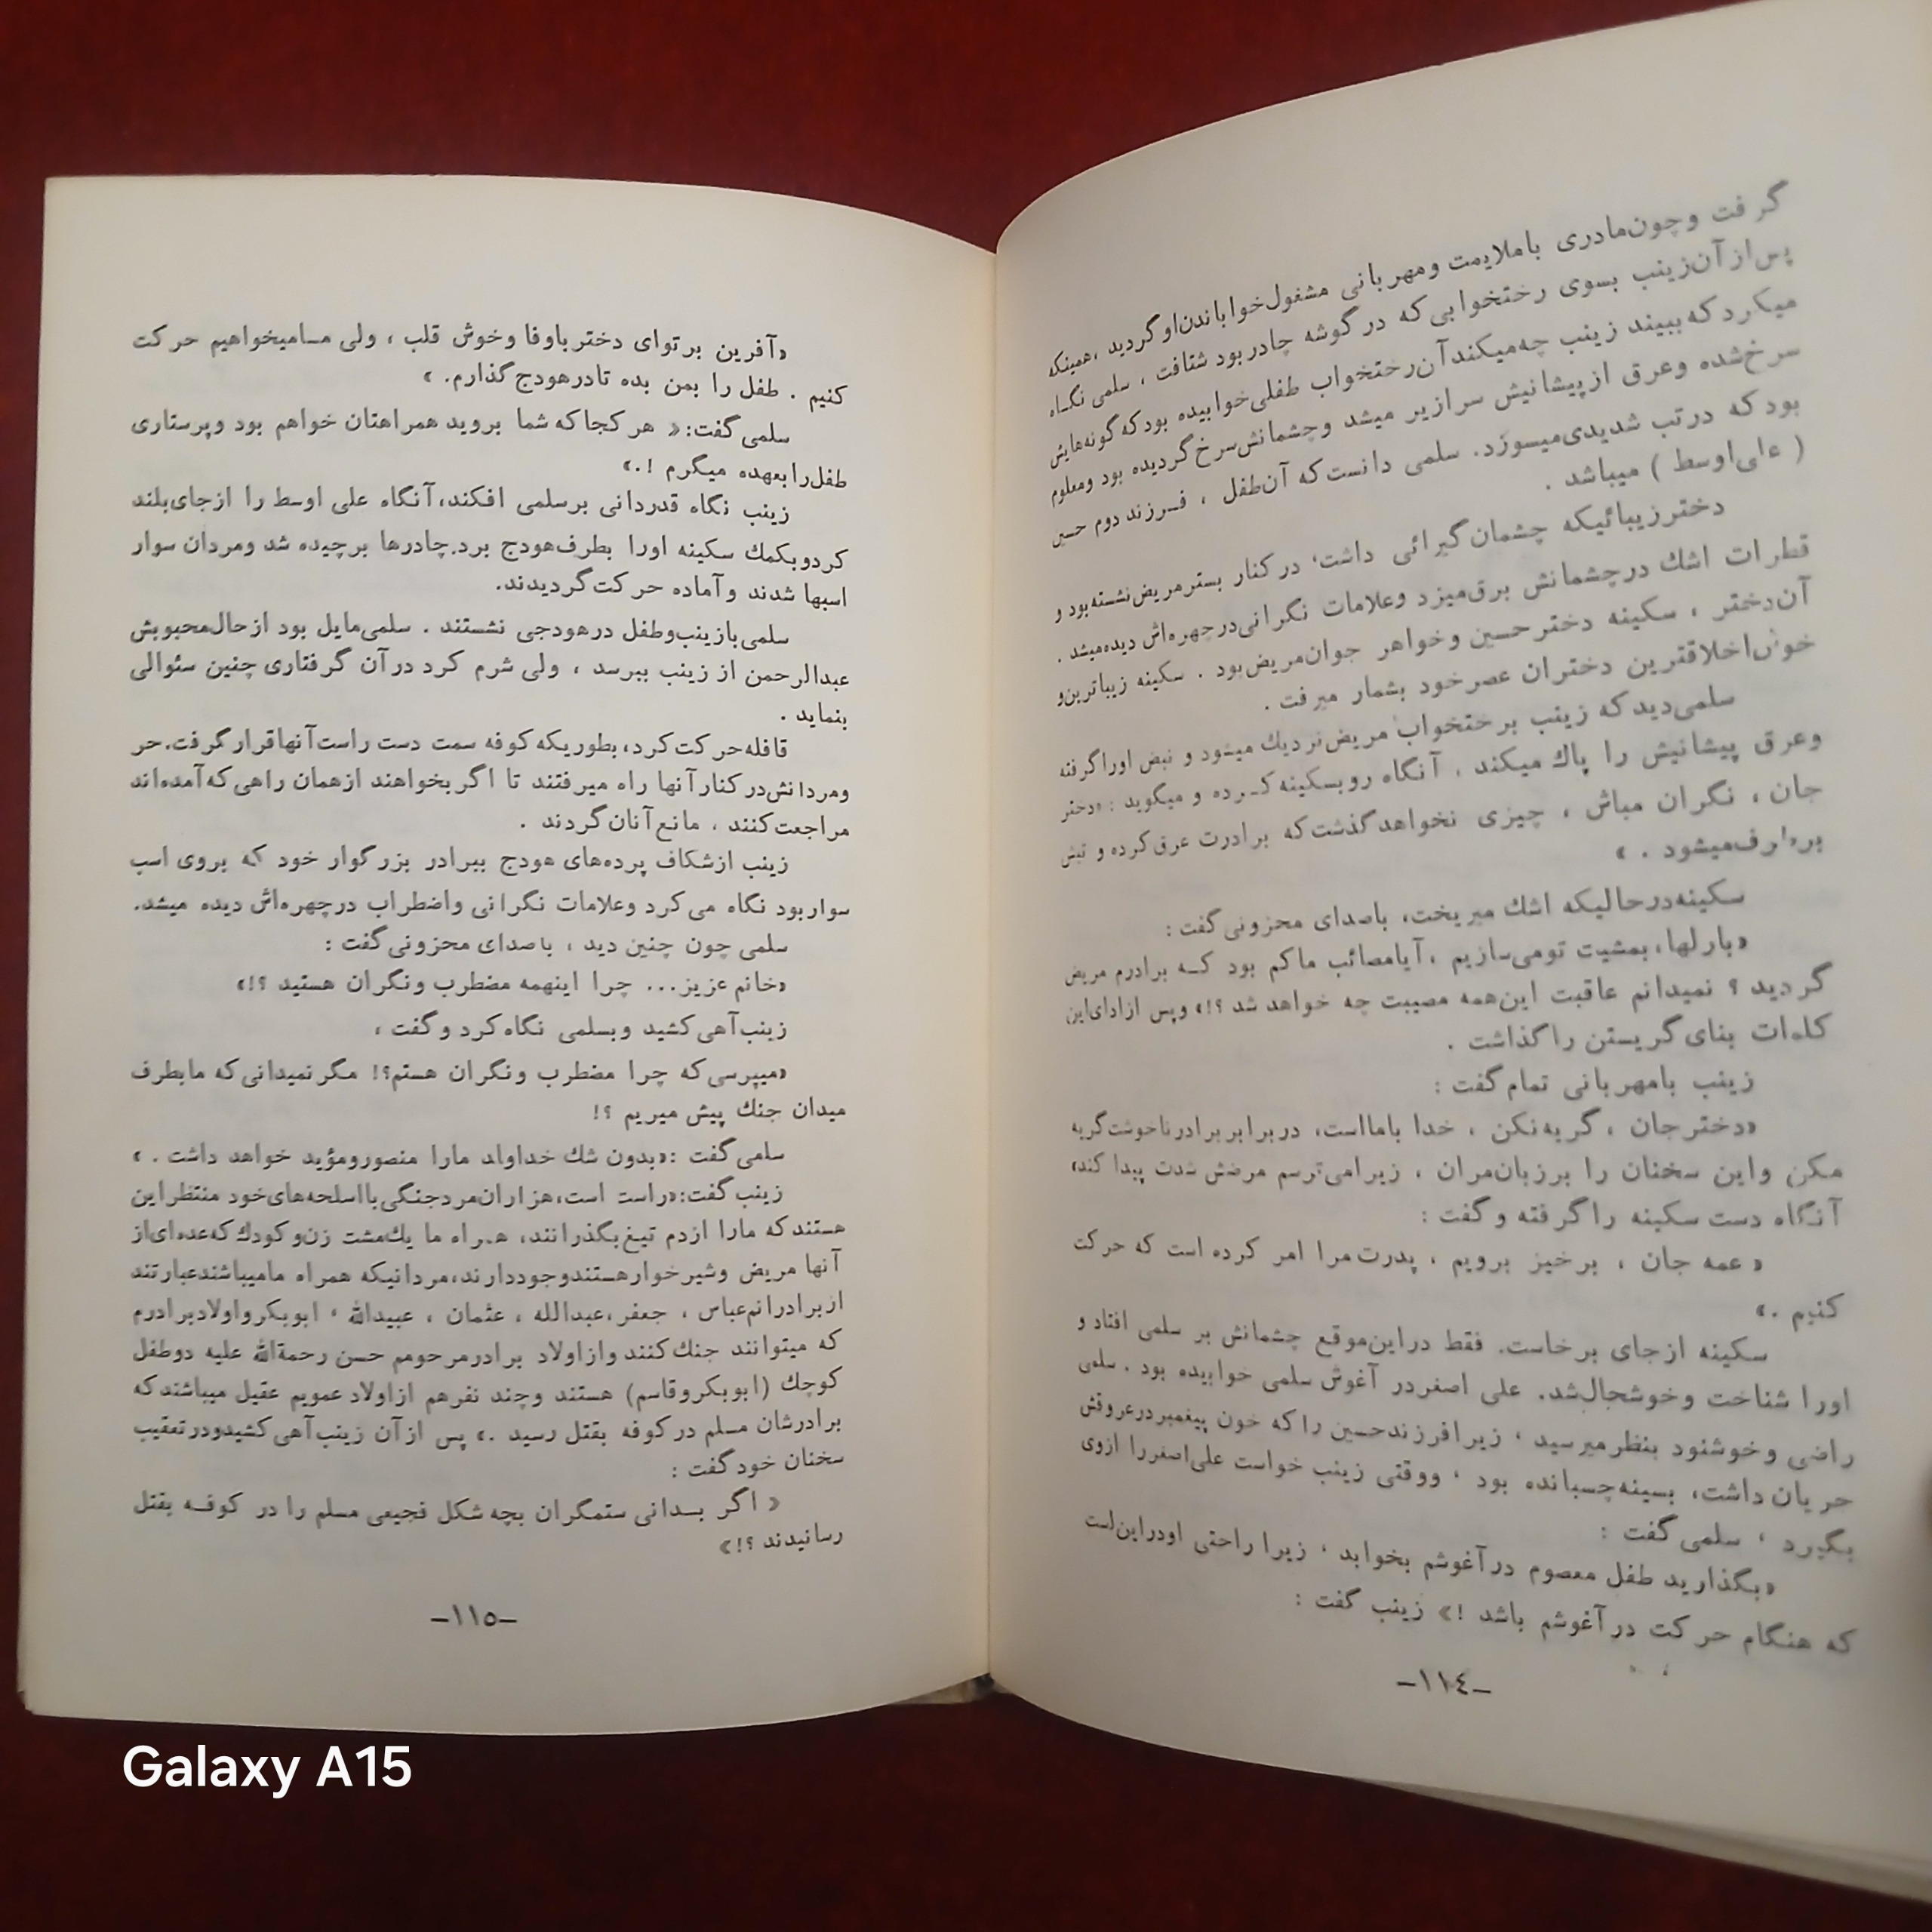 گرفت وچون‌مادری باملایمت ومهربانی مشغول‌خواباندن‌اوگردید ،همینکه
پس‌ازآن‌زینب بسوی رختخوابی‌که درگوشه چادربود شتافت ، سلمی نگاه
میکردکه‌ببیند زینب چه‌میکندآن‌رختخواب طفلی‌خوابیده بودکه‌گونه‌هایش
سرخ‌شده وعرق ازپیشانیش سرازیر میشد وچشمانش‌سرخ‌گردیده بود ومعلوم
بودکه درتب شدیدی‌میسوزد. سلمی دانست‌که آن‌طفل ، فرزند دوم حسین
( علی‌اوسط ) میباشد .
دخترزیبائیکه چشمان‌گیرائی داشت، درکنار بسترمریض‌نشسته‌بود و
قطرات اشك درچشمانش برق‌میزد وعلامات نگرانی‌درچهره‌اش دیده‌میشد .
آن‌دختر ، سکینه دخترحسین وخواهر جوان‌مریض‌بود . سکینه زیباترین‌و
خوش‌اخلاقترین دختران عصرخود بشمار میرفت .
سلمی‌دیدکه زینب برختخواب مریض‌نزدیك میشود و نبض اوراگرفته
وعرق پیشانیش را پاك میکند . آنگاه روبسکینه‌کرده و میگوید : «دختر
جان ، نگران مباش ، چیزی نخواهدگذشت‌که برادرت عرق‌کرده و تبش
برطرف‌میشود . »
سکینه‌درحالیکه اشك میریخت، باصدای محزونی‌گفت :
«بارلها، بمشیت تومی‌سازیم ،آیامصائب ماکم بود که برادرم مریض
گردید ؟ نمیدانم عاقبت این‌همه مصیبت چه خواهد شد ؟!» وپس ازادای‌این
کلمات بنای‌گریستن راگذاشت .
زینب بامهربانی تمام‌گفت :
«دخترجان ، گریه‌نکن ، خدا بامااست، دربرابر برادرناخوشت‌گریه
مکن واین سخنان را برزبان‌مران ، زیرامی‌ترسم مرضش شدت پیدا کند»
آنگاه دست سکینه راگرفته وگفت :
« عمه جان ، برخیز برویم ، پدرت‌مرا امر کرده است که حرکت
کنیم .»
سکینه ازجای برخاست. فقط دراین‌موقع چشمانش بر سلمی افتاد و
اورا شناخت وخوشحال‌شد. علی اصغردر آغوش سلمی خوابیده بود . سلمی
راضی وخوشنود بنظرمیرسید ، زیرافرزندحسین راکه خون پیغمبردرعروقش
جریان داشت، بسینه‌چسبانده بود ، ووقتی زینب خواست علی‌اصغررا ازوی
بگیرد ، سلمی‌گفت :
«بگذارید طفل معصوم درآغوشم بخوابد ، زیرا راحتی اودراین‌است
که هنگام حرکت درآغوشم باشد !» زینب گفت :
–۱۱٤–
«آفرین برتوای دخترباوفا وخوش قلب ، ولی مامیخواهیم حرکت
کنیم . طفل را بمن بده تادرهودج‌گذارم. »
سلمی‌گفت:« هرکجاکه شما بروید همراهتان خواهم بود وپرستاری
طفل‌رابعهده میگرم !.»
زینب نگاه قدردانی برسلمی افکند، آنگاه علی اوسط را ازجای‌بلند
کردوبکمك سکینه اورا بطرف‌هودج برد.چادرها برچیده شد ومردان سوار
اسبها شدند وآماده حرکت‌گردیدند.
سلمی‌بازینب‌وطفل درهودجی نشستند . سلمی‌مایل بود ازحال‌محبوبش
عبدالرحمن از زینب بپرسد ، ولی شرم کرد درآن گرفتاری چنین سئوالی
بنماید .
قافله‌حرکت‌کرد، بطوریکه‌کوفه سمت دست راست‌آنهاقرارگرفت.حر
ومردانش‌درکنارآنها راه میرفتند تا اگربخواهند ازهمان راهی‌که‌آمده‌اند
مراجعت‌کنند ، مانع‌آنان‌گردند .
زینب ازشکاف پرده‌های هودج ببرادر بزرگوار خود که بروی اسب
سواربود نگاه می‌کرد وعلامات نگرانی واضطراب درچهره‌اش دیده میشد.
سلمی چون چنین دید ، باصدای محزونی‌گفت :
«خانم عزیز... چرا اینهمه مضطرب ونگران هستید ؟!»
زینب‌آهی‌کشید وبسلمی نگاه‌کرد وگفت ،
«میپرسی‌که چرا مضطرب ونگران هستم؟! مگرنمیدانی‌که مابطرف
میدان جنك پیش میریم ؟!
سلمی‌گفت :«بدون شك خداوند مارا منصورومؤید خواهد داشت . »
زینب‌گفت:«راست است،هزاران‌مردجنگی‌بااسلحه‌های‌خود منتظراین
هستندکه مارا ازدم تیغ‌بگذرانند، همراه ما یك‌مشت زن‌وکودك‌که‌عده‌ای‌از
آنها مریض وشیرخوارهستندوجوددارند،مردانیکه همراه مامیباشندعبارتند
ازبرادرانم‌عباس ، جعفر،عبدالله ، عثمان ، عبیدالله ، ابوبکرواولادبرادرم
که میتوانند جنك‌کنند وازاولاد برادرمرحومم حسن رحمةالله علیه دوطفل
کوچك (ابوبکروقاسم) هستند وچند نفرهم ازاولاد عمویم عقیل میباشندکه
برادرشان مسلم درکوفه بقتل رسید .» پس ازآن زینب‌آهی‌کشیدودرتعقیب
سخنان خودگفت :
« اگر بدانی ستمگران بچه شکل فجیعی مسلم را در کوفه بقتل
رسانیدند ؟!»
–۱۱۵–
Galaxy A15